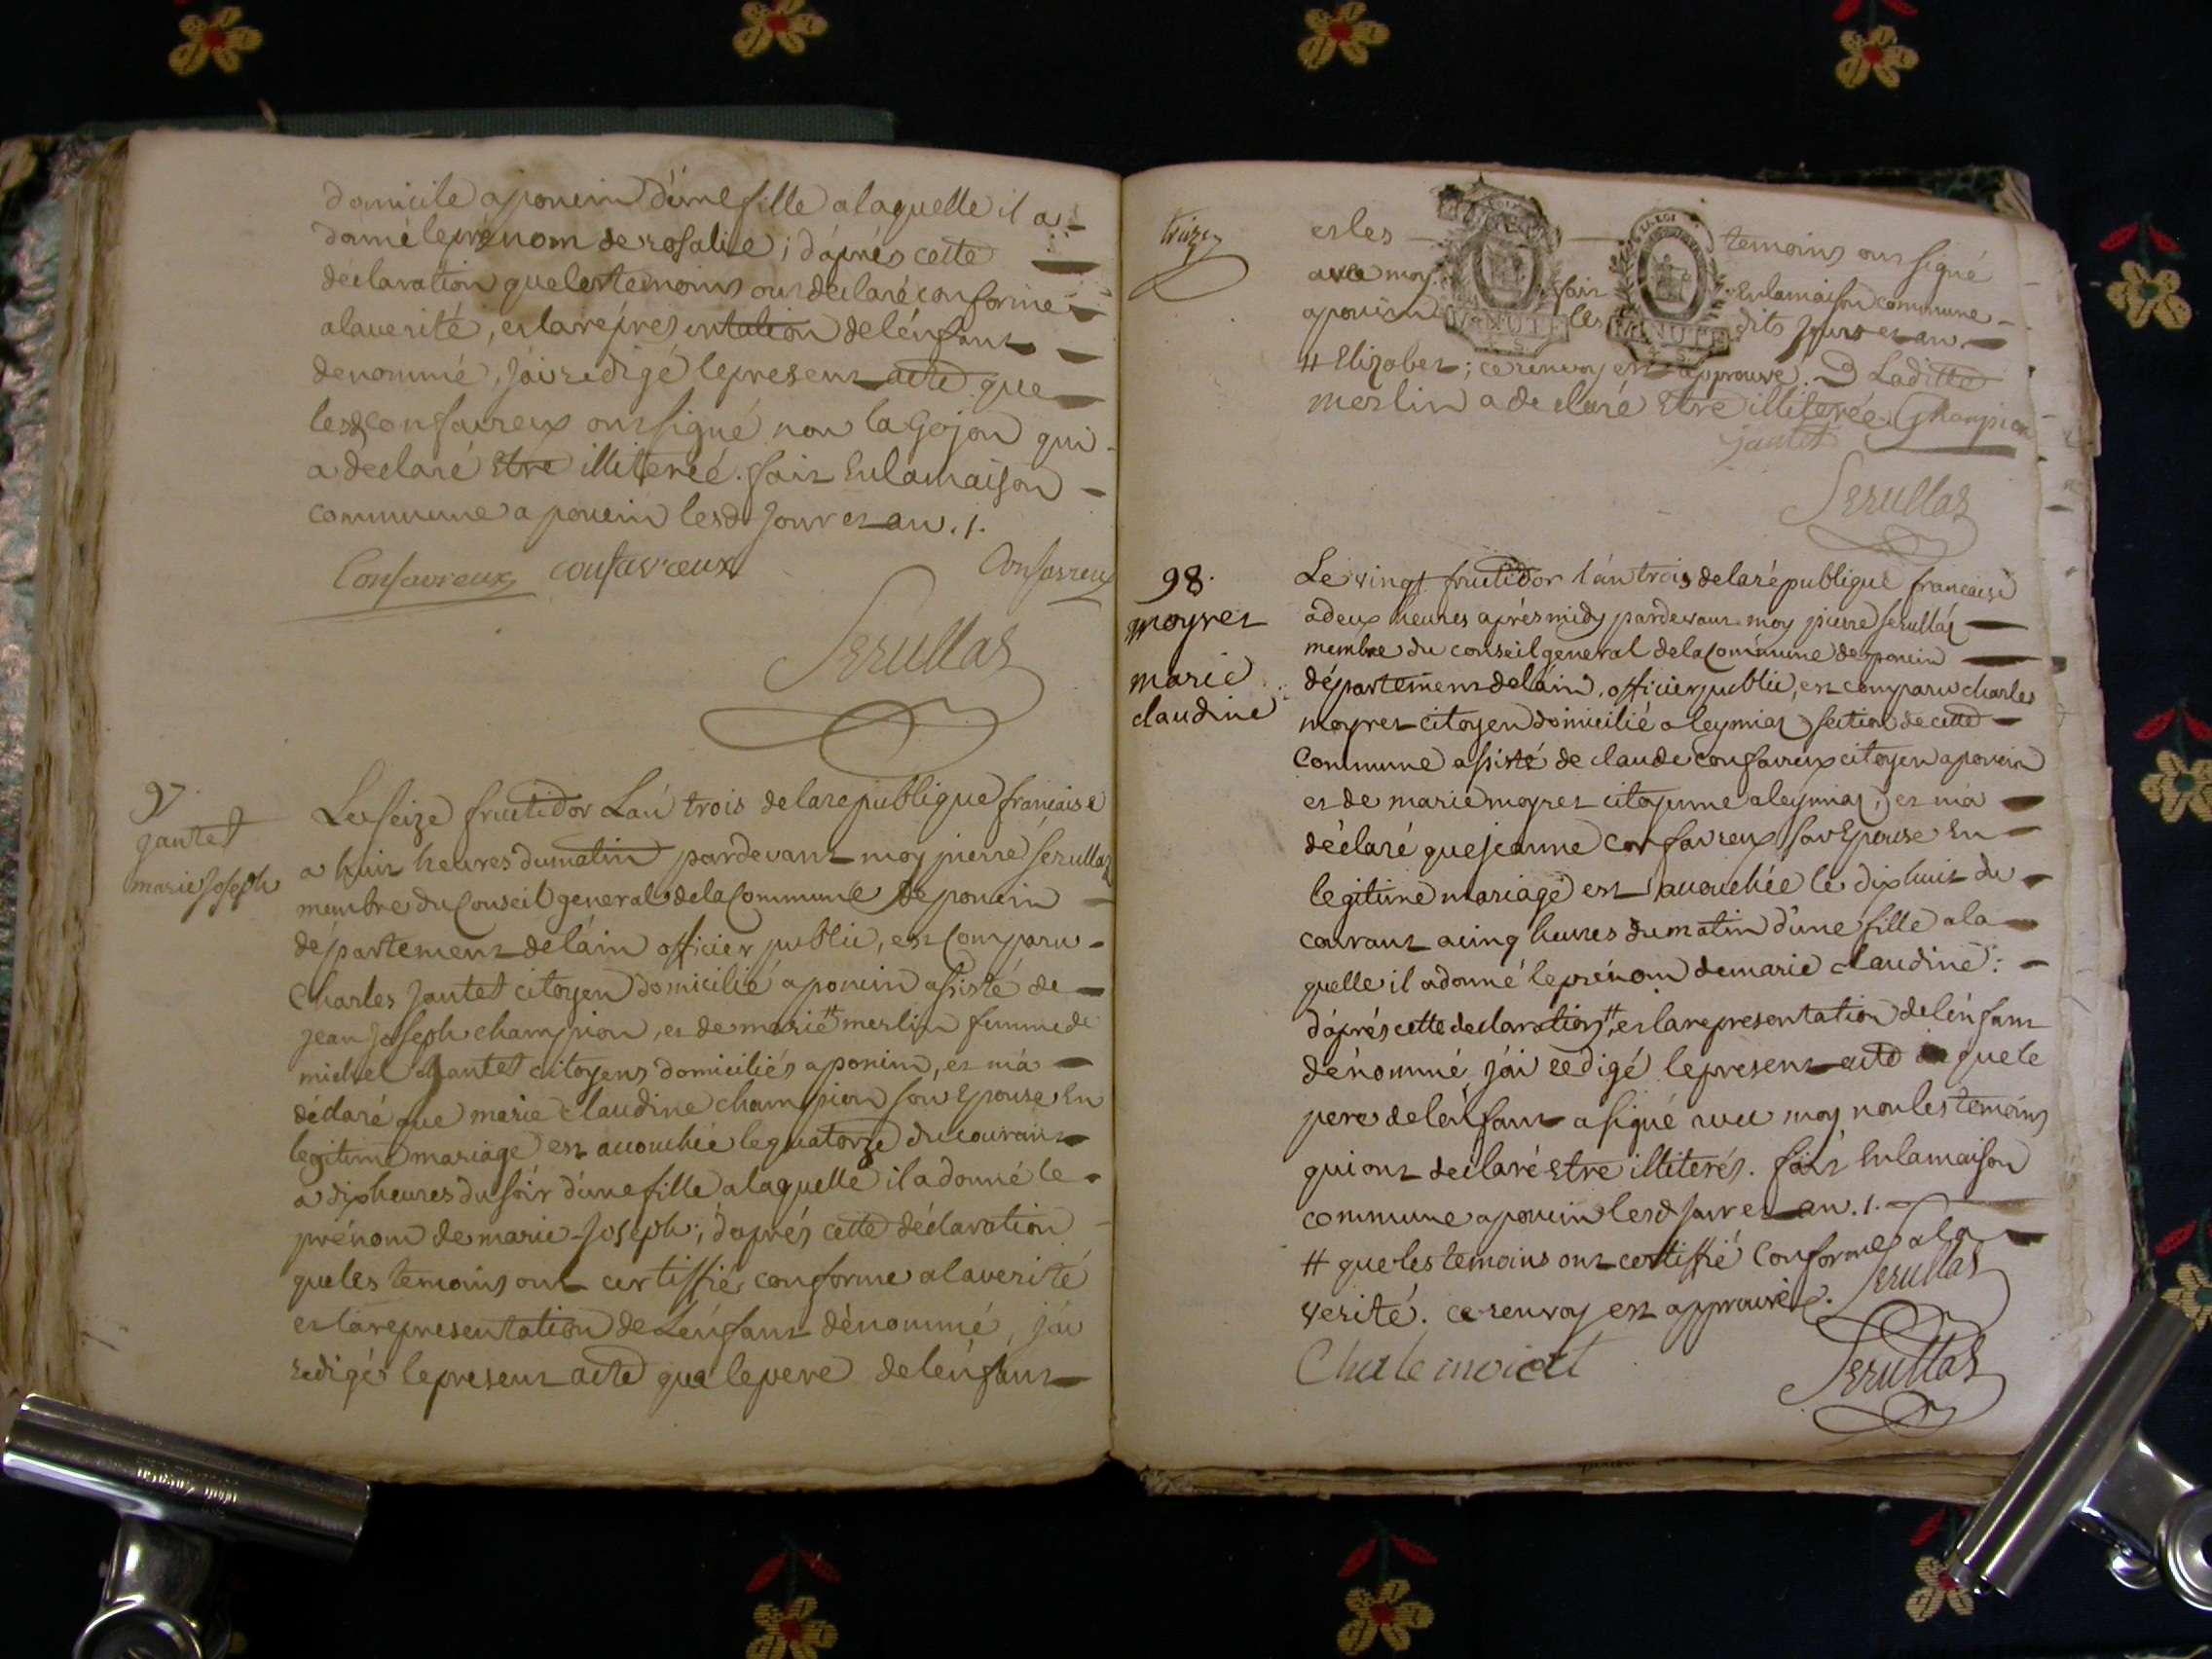 domicile a poncin d'une fille a laquelle il a
donné le prénom de rosalie ; d'aprés cette
déclaration que les temoins ont declaré conforme
a la verité, et la representation de lénfant
denommé, jái redigé le present acte que
lesd confavreux ont signé non la Gojon qui
a declaré Etre illiterée. fait En la maison
commune a poncin lesd jour et an . / .
Confavreux confavreux Confavreux
Serullas
97
jantet
marie joseph
Le seize fructidor L'an trois de la republique francaise
a huit heures du matin pardevant moy pierre serullaz
membre du Conseil general de la Commune de poncin
département de láin officier public, est Comparu
Charles jantet citoyen domicilié a poncin assisté de
jean joseph champion, et de marie # merlin femme de
michel jantet citoyens domiciliés a poncin, et m'a
déclaré que marie claudine champion son Epouse En
legitime mariage est accouchée le quatorze du courant
a dix heures du soir d'une fille a laquelle il a donné le
prénom de marie-joseph ; d'aprés cette déclaration
que les temoins ont certiffié conforme a la verité
et la representation de Lénfant dénommé, jái
redigé le present acte que le pere de lénfant
treize
et les temoins ont signé
avec moy. fait En la maison commune
a poncin les dits jours et an.
# Elizabet ; ce renvoy est approuvé. Laditte
merlin a declaré Etre illiterée. Champion
jantet
Serullas
98.
moyret
marie
claudine
Le vingt fructidor l'án trois de la république francaise
a deux heures aprés midy pardevant moy pierre serullaz
membre du conseil general de la Commune de poncin
département de láin, officier public, est comparu charles
moyret citoyen domicilié a leymiat section de cette
Commune assisté de claude confavreux citoyen a poncin
et de marie moyret citoyenne a leymiat, et m'a
déclaré que jeanne confavreux son Epouse En
legitime mariage est accouchée le dixhuit du
courant a cinq heures du matin d'une fille a la
quelle il a donné le prénom de marie claudine :
d'aprés cette declaration #, et la representation de lénfant
dénommé, jái redigé le present acte que le
pere de lénfant a signé avec moy non les temoins
qui ont declaré Etre illiterés. fait En la maison
commune a poncin lesd jour et an . / .
# que les temoins ont certiffié conforme a la
verité. ce renvoy est approuvé. Serullas
Serullas